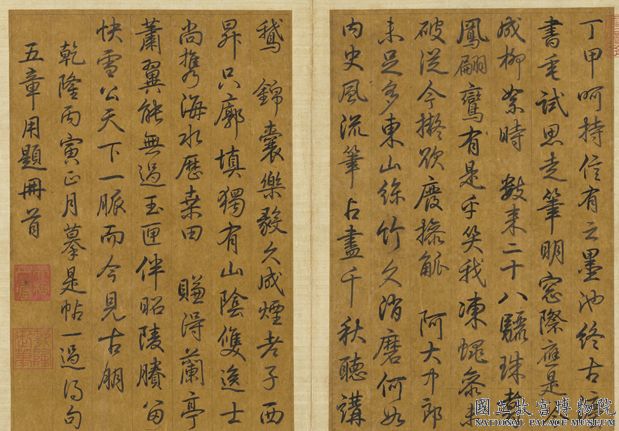 丁甲呵持信有之墨池終古
書垂試思走筆明窗際應是
成柳絮時 數來二十八驪珠
鳳翩鸞有是乎笑我凍蠅參
破從今擬欲廢操觚 阿大中郎
未足多東山絲竹久消磨何如
內史風流筆占盡千秋聽講
鵝 錦囊樂毅久成煙老子西
昇只廓填獨有山陰雙逸士
尚攜海水歷桑田 賺得蘭亭
蕭翼能無過玉匣伴昭陵賸留
快雪公天下一脈而今見古朋
乾隆丙寅正月摹是帖一過得句
五章用題冊首
國立故宮博物院
NATIONAL PALACE MUSEUM